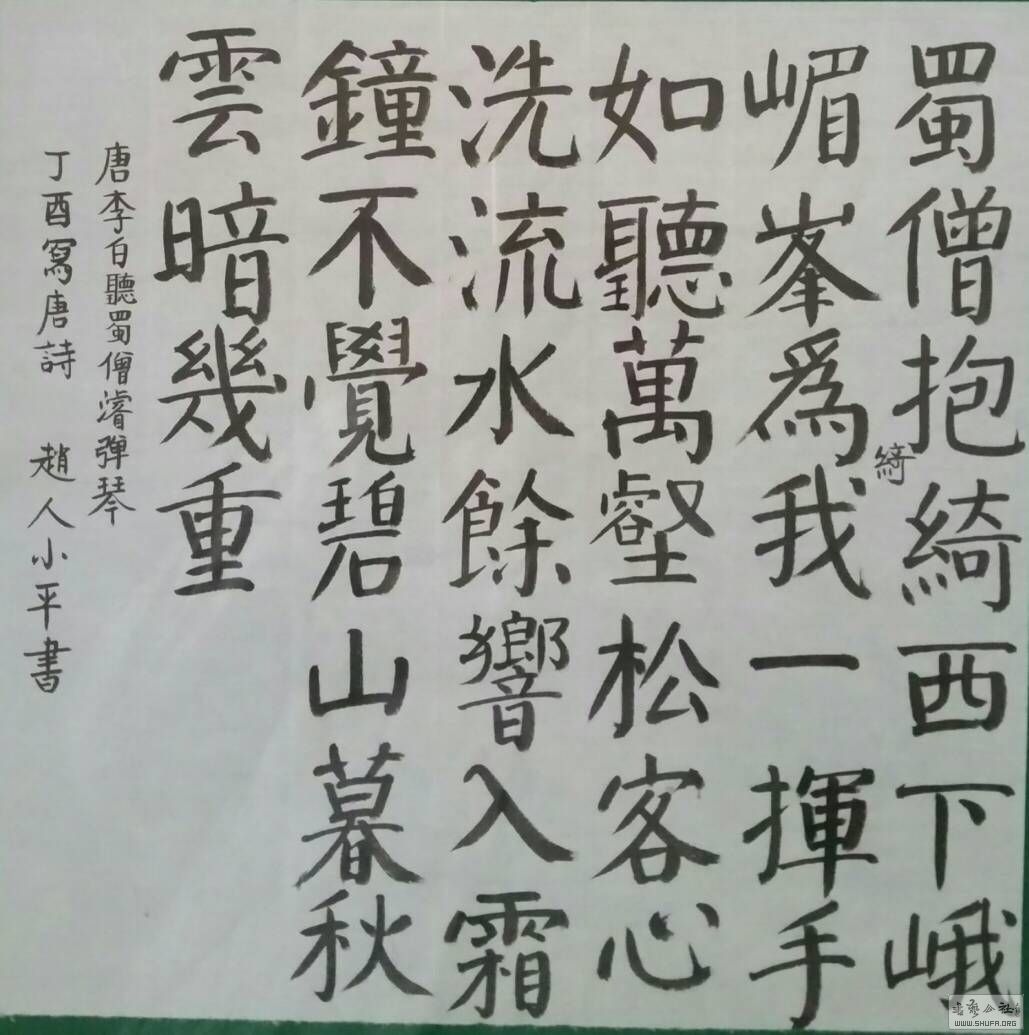 蜀僧抱綺西下峨
綺
嵋峯爲我一揮手
如聽萬壑松客心
洗流水餘響入霜
鐘不覺碧山暮秋
雲暗幾重
唐李白聽蜀僧濬彈琴
丁酉寫唐詩 趙人小平書
WWW.SHUFA.ORG